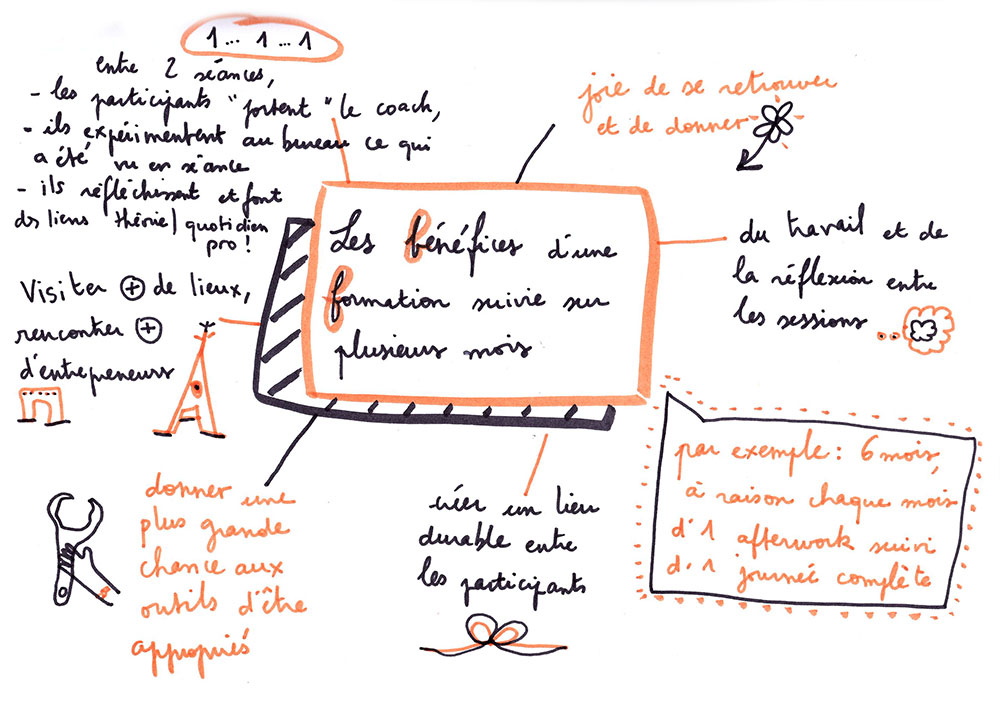 1... 1...1
entre 2 séances,
- les participants "portent" le coach,
- ils expérimentent au bureau ce qui
a été vu en séance
- ils réfléchissent et font
des liens théorie/quotidien
pro !
joie de se retrouver
et de donner
Les bénéfices d'une
formation suivie sur
plusieurs mois
du travail et de
la réflexion entre
les sessions
Visiter + de lieux,
rencontrer +
d'entrepreneurs
par exemple : 6 mois,
à raison chaque mois
d'1 afterwork suivi
d'1 journée complète
donner une
plus grande
chance aux
outils d'être
appropriés
créer un lien
durable entre
les participants